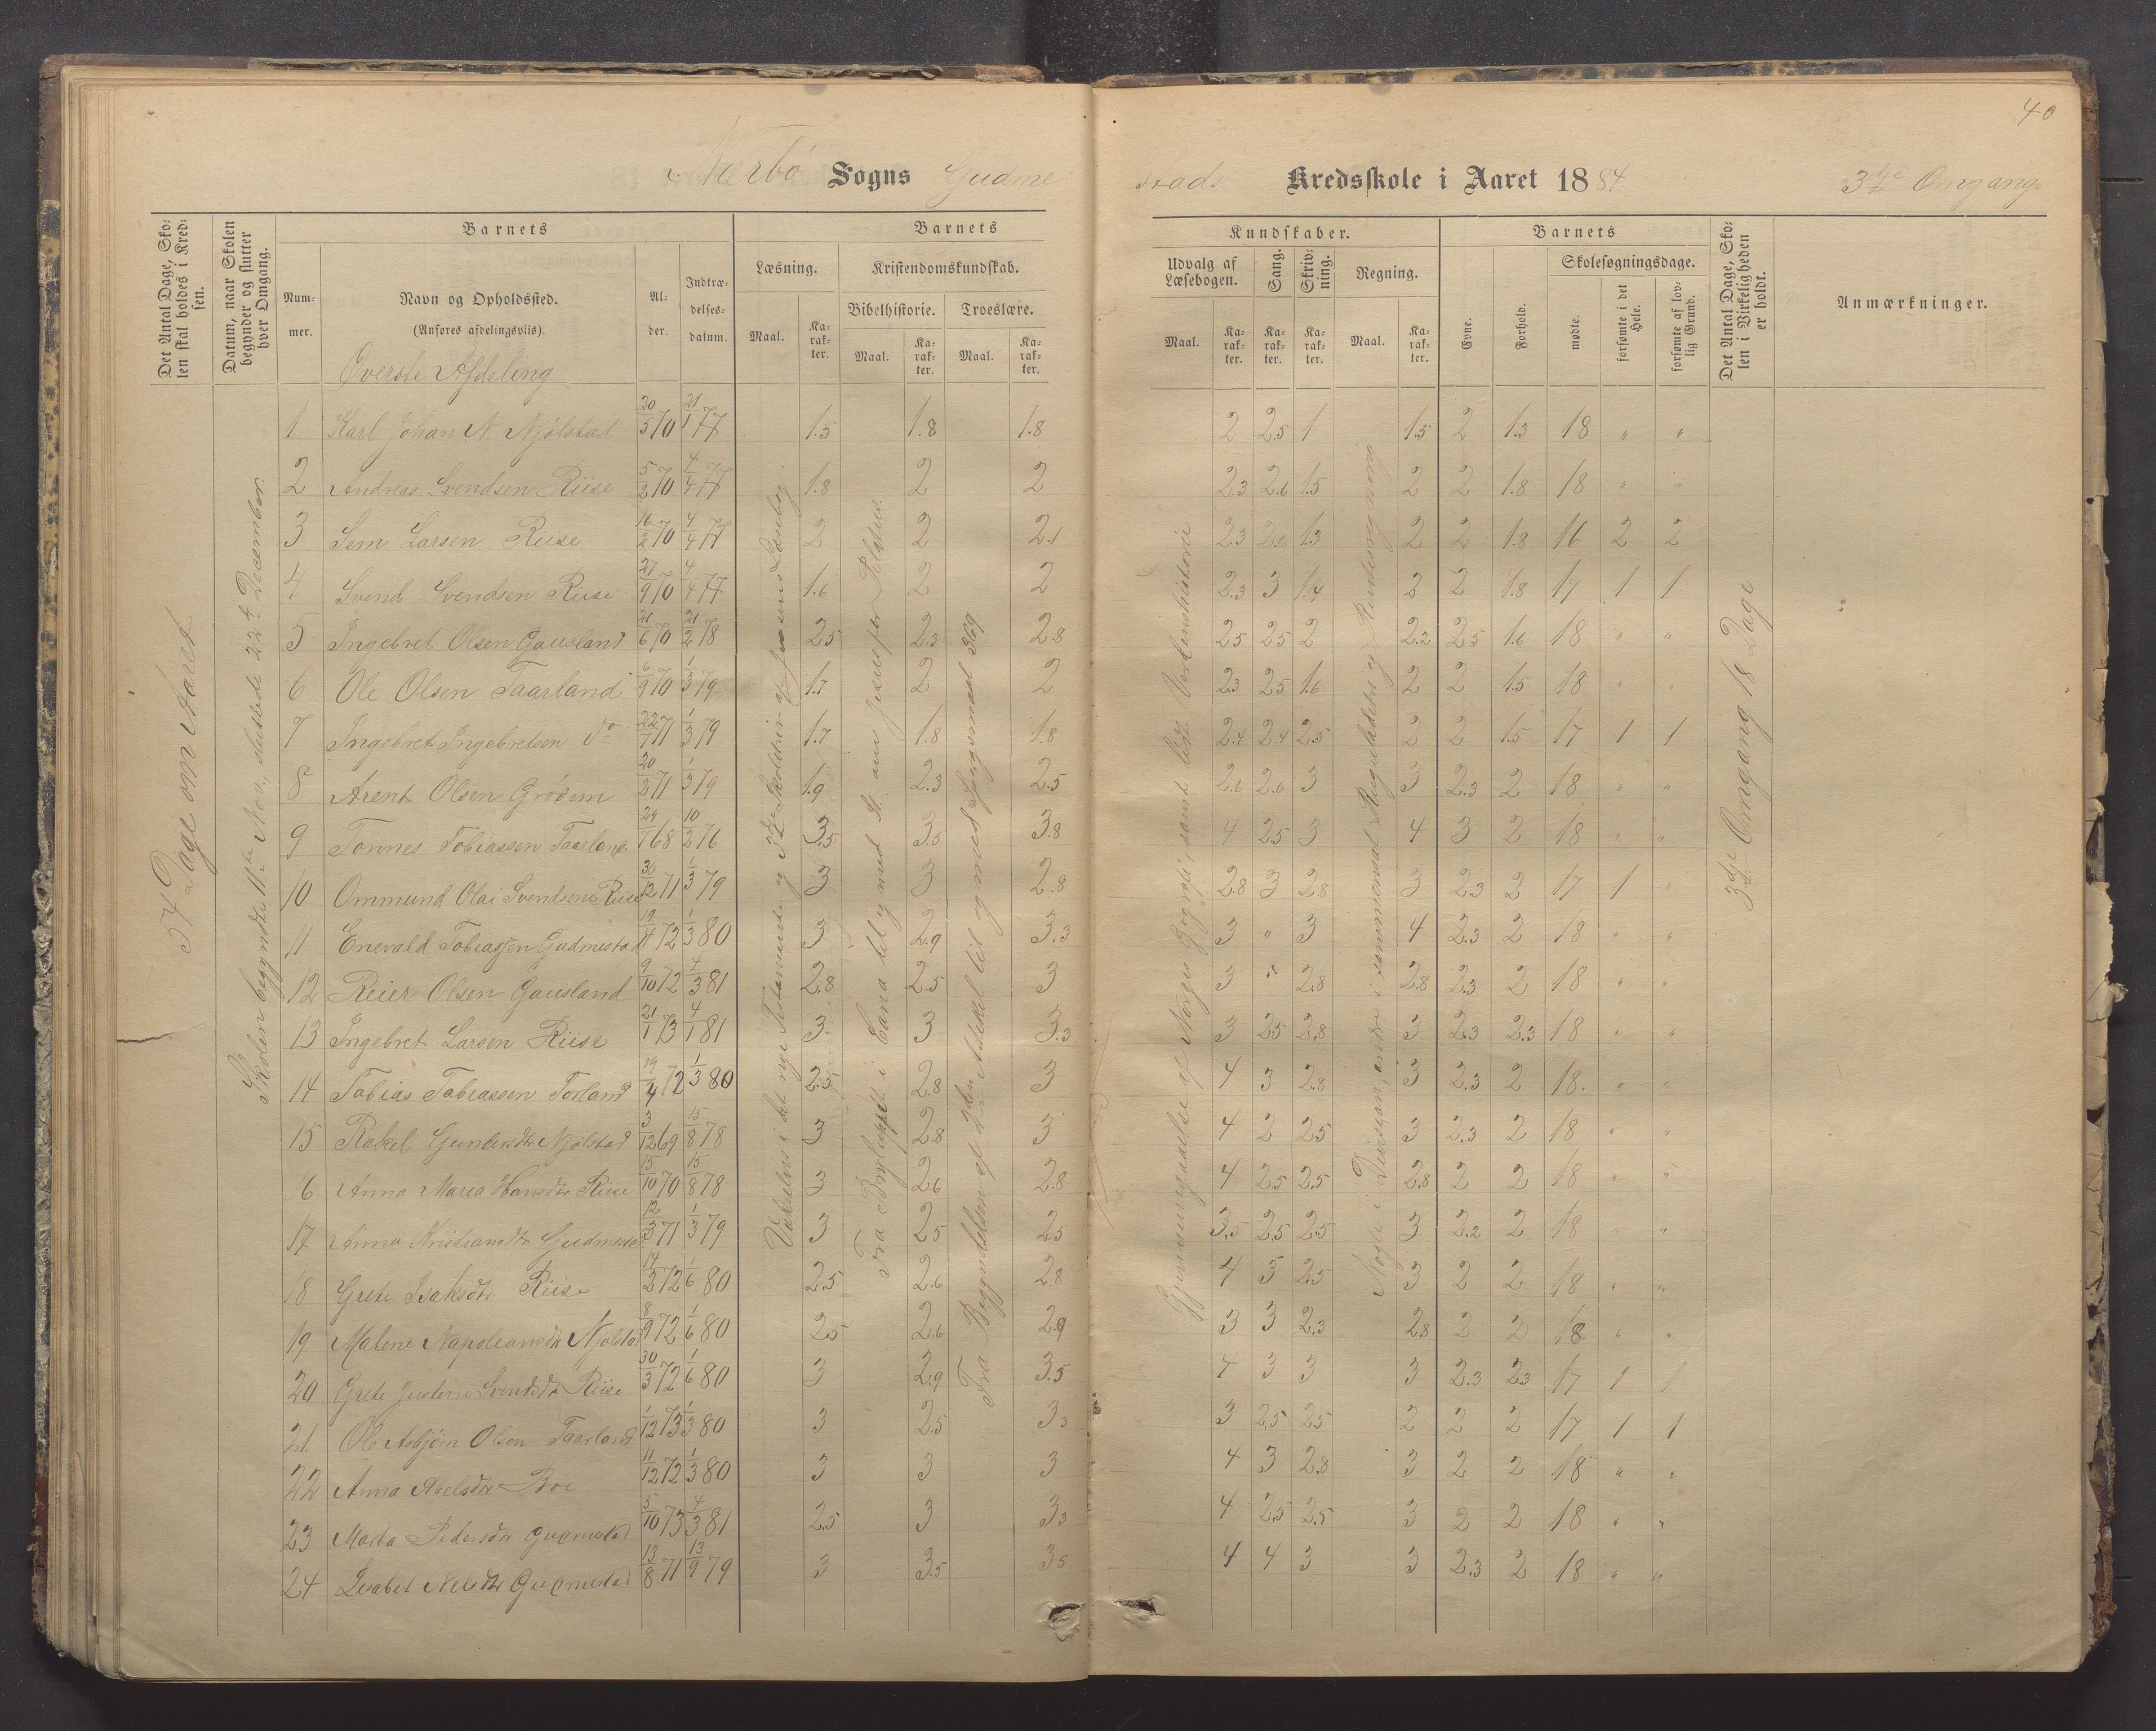 40
Nærbö Sogns Gudmestads Kredsskole i Aaret 1884 3die Omgang.
Det Antal Dage, Skolen skal holdes i Kredsen.
Datum, naar Skolen begynder og slutter hver Omgang.
Barnets
Nummer.
Navn og Opholdssted.
(Anføres afdelingsviis).
Alder.
Indtrædelsesdatum.
Barnets Kundskaber.
Læsning.
Kristendomskundskab.
Bibelhistorie.
Troeslære.
Maal. Karakter. Maal. Karakter. Maal. Karakter.
Udvalg af Læsebogen.
Sang.
Skrivning.
Regning.
Maal. Karakter. Karakter. Karakter. Maal. Karakter.
Barnets
Evne.
Forhold.
Skolesøgningsdage.
mødte.
forsømte i det Hele.
forsømte af lovlig Grund.
Det Antal Dage, Skolen i Virkeligheden er holdt.
Anmærkninger.
Överste Afdeling
54 Dage om Aaret
Skolen begyndte 11te Nov., sluttede 22de December.
Fra Bryluppet i Cana til og med
Gjennemgaaelse af Norges Geografi, samt
3die Omgang 18 Dage
1 Karl Johan N. Njölstad 20/5 70 21/1 77 1.5 1.8 1.8 2 2.5 1 1.5 2 1.3 18 " "
2 Andreas Svendsen Riise 5/2 70 4/4 77 1.8 2 2 2.3 2.6 1.5 2 2 1.8 18 " "
3 Sem Larsen Riise 16/2 70 4/4 77 2 2 2.1 2.3 2.6 1.3 2 2 1.8 16 2 2
4 Svend Svendsen Riise 27/9 70 4/4 77 1.6 2 2 2.3 3 1.4 2 2 1.8 17 1 1
5 Ingebret Olsen Gausland 21/6 70 21/2 78 2.5 2.3 2.8 2.5 2.5 2 2.2 2.5 1.6 18 " "
6 Ole Olsen Taarland 6/9 70 1/3 79 1.7 2 2 2.3 2.5 1.6 2 2 1.5 18 " "
7 Ingebret Ingebretsen do 22/7 71 1/3 79 1.7 1.8 1.8 2.4 2.4 2.5 2 2 1.5 17 1 1
8 Arent Olsen Grödem 20/2 71 1/3 79 1.9 2.3 2.5 2.6 2.6 3 3 2.3 2 18 " "
9 Tonnes Tobiassen Taarland 29/1 68 10/2 76 3.5 3.5 3.8 4 2.5 3 4 3 2 18 " "
10 Ommund Olai Svendsen Riise 12 71 1/3 79 3 3 2.8 2.8 3 2.8 3 2.3 2 17 1 "
11 Enevald Tobiassen Gudmestad 19/4 72 1/3 80 3 2.9 3.3 3 " 3 4 2.3 2 18 " "
12 Reier Olsen Gausland 9/10 72 4/3 81 2.8 2.5 3 3 " 2.8 2.8 2.3 2 18 " "
13 Ingebret Larsen Riise 21/1 73 4/1 81 3 3 3.3 3 2.5 2.8 3 2.3 2.3 18 " "
14 Tobias Tobiassen Torland 19/4 72 1/3 80 2.5 2.8 3 4 3 2.8 3 2.3 2 18. " "
15 Rakel Gundersdtr Njölstad 3/12 69 15/8 78 3 2.8 3 4 2 2.5 3 2.3 2 18 " "
6 Anna Maria Hansdtr Riise 15/10 70 15/8 78 3 2.6 2.8 4 2.5 2.5 2.8 2 2 18 " "
17 Anna Kristiansdtr Gudmestad 12/3 71 1/3 79 3 2.5 2.5 3.5 2.5 2.5 3 2.2 2 18 "
18 Grete Isaksdtr Riise 14/2 72 1/6 80 2.5 2.6 2.8 4 3 2.5 3 2 2 18 " "
19 Malene Napoleansdtr Njolstad 8/9 72 1/6 80 2.5 2.6 2.9 3 3 2.3 2.8 2 2 18. " "
20 Grete Justine Svendsdtr Riise 30/3 72 1/6 80 3 2.9 3.5 4 3 3 3 2.3 2.3 17 1 1
21. Ole Asbjörn Olsen Taarland 1/12 73 1/3 80 3 2.5 3.3 3 2.5 2.5 2 2 2 17 1 1
22 Anna Abelsdtr Boe 11/12 72 1/3 80 3 3 3 4 3 2.8 3 2 2 18 " "
23 Marta Pedersdtr Gudmestad 5/10 73 4/3 81 2.5 3 3.3 4 2.5 2.5 3 2 2 18 " "
24 Isabel Nilsdtr Gudmestad 13/8 71 13/9 79 3 3.5 3.5 4 4 3 3 2.3 2 18 " "